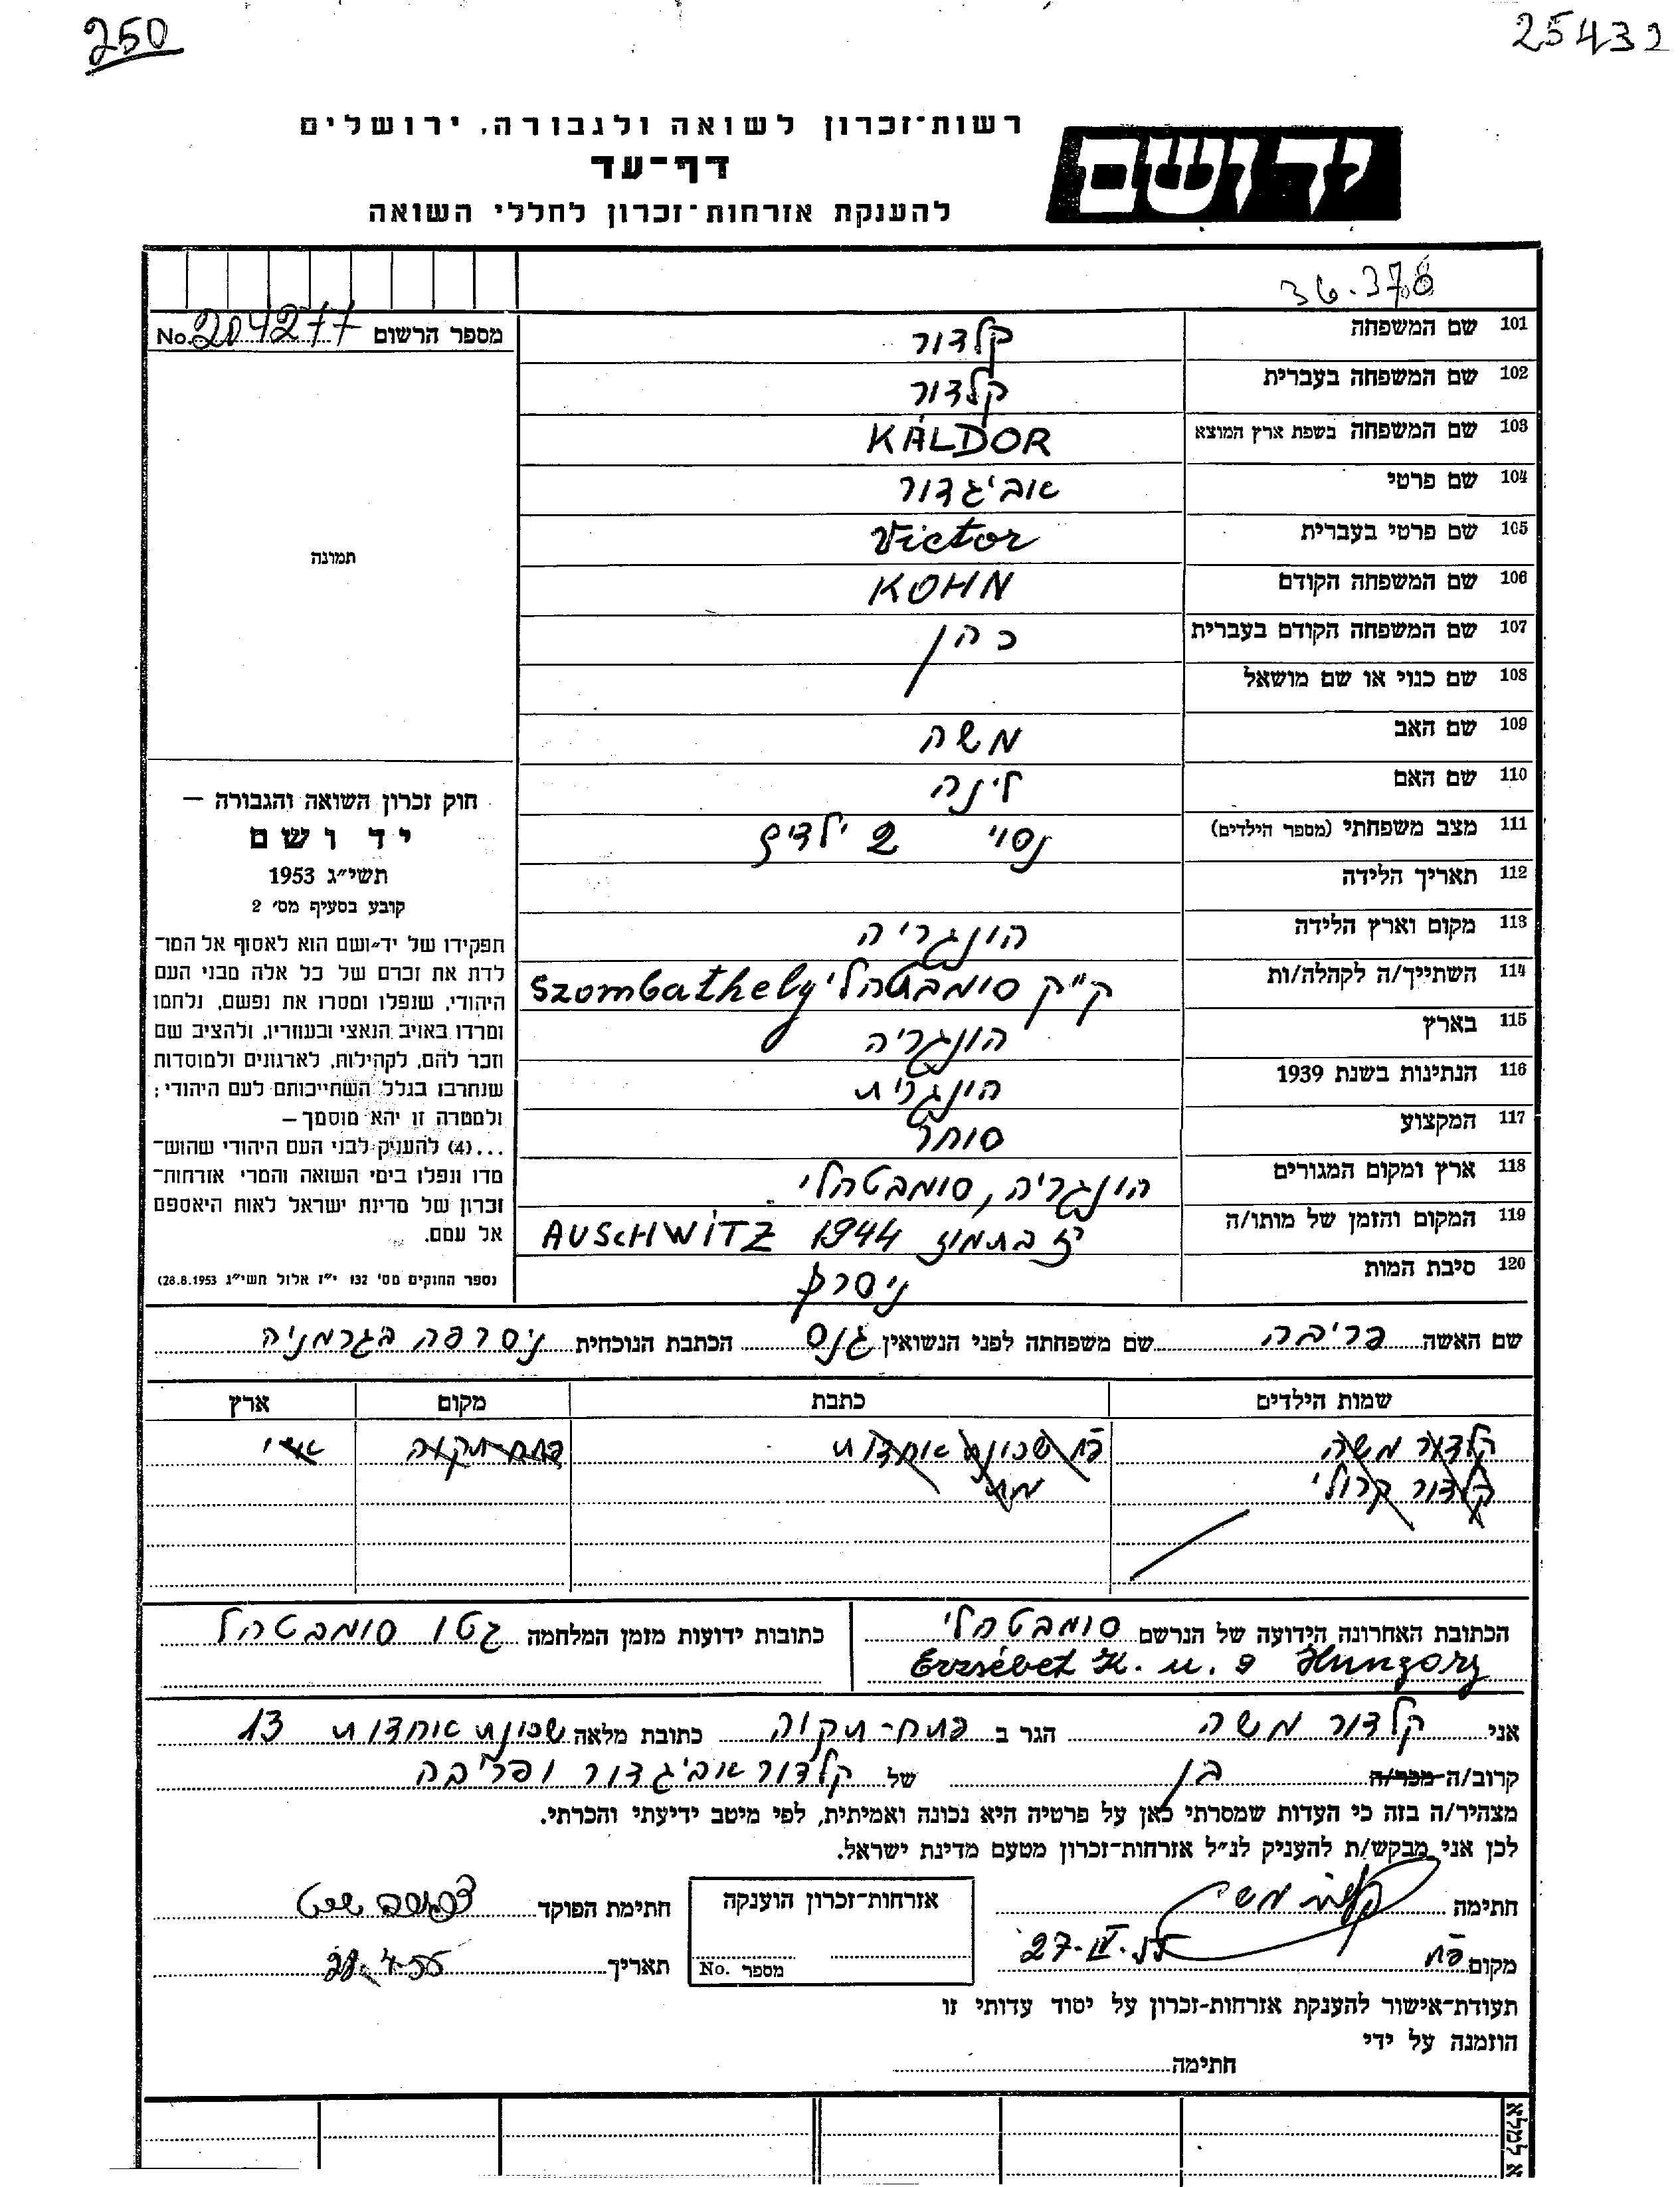 250
25432
ידושם
רשות־זכרון לשואה ולגבורה, ירושלים
דף־עד
להענקת אזרחות־זכרון לחללי השואה
36.378
101 שם המשפחה קלדור
102 שם המשפחה בעברית קלדור
103 שם המשפחה בשפת ארץ המוצא KÁLDOR
104 שם פרטי אביגדור
105 שם פרטי בעברית Victor
106 שם המשפחה הקודם KOHN
107 שם המשפחה הקודם בעברית כהן
108 שם כנוי או שם מושאל
109 שם האב משה
110 שם האם לינה
111 מצב משפחתי (מספר הילדים) נסוי 2 ילדים
112 תאריך הלידה
113 מקום וארץ הלידה הונגריה
114 השתייך/ה לקהלה/ות ק״ק סומבטהלי Szombathely
115 בארץ הונגריה
116 הנתינות בשנת 1939 הונגרית
117 המקצוע סוחר
118 ארץ ומקום המגורים הונגריה, סומבטהלי
119 המקום והזמן של מותו/ה יז בתמוז 1944 AUSCHWITZ
120 סיבת המות ניסרף
מספר הרשום No. 204277
תמונה
חוק זכרון השואה והגבורה —
יד ושם
תשי״ג 1953
קובע בסעיף מס׳ 2
תפקידו של יד־ושם הוא לאסוף אל המו־
לדת את זכרם של כל אלה מבני העם
היהודי, שנפלו ומסרו את נפשם, נלחמו
ומרדו באויב הנאצי ובעוזריו, ולהציב שם
וזכר להם, לקהילות, לארגונים ולמוסדות
שנחרבו בגלל השתייכותם לעם היהודי;
ולמטרה זו יהא מוסמך —
...(4) להעניק לבני העם היהודי שהוש־
מדו ונפלו בימי השואה והמרי אזרחות־
זכרון של מדינת ישראל לאות היאספם
אל עמם.
(ספר החוקים מס׳ 132 י״ז אלול תשי״ג 28.8.1953)
שם האשה פריבה שם משפחתה לפני הנשואין גנס הכתבת הנוכחית ניסרפה בגרמניה
שמות הילדים כתבת מקום ארץ
קלדור משה פת שכונת אחדות פתח תקוה
קלדור קרולי מת
הכתובת האחרונה הידועה של הנרשם סומבטהלי
Erzsébet K. u. 9 Hungory
כתובות ידועות מזמן המלחמה גטו סומבטהל
אני קלדור משה הגר ב פתח-תקוה כתובת מלאה שכונת אחדות 13
קרוב/ה מכר/ה בן של קלדור אביגדור ופריבה
מצהיר/ה בזה כי העדות שמסרתי כאן על פרטיה היא נכונה ואמיתית, לפי מיטב ידיעתי והכרתי.
לכן אני מבקש/ת להעניק לנ״ל אזרחות־זכרון מטעם מדינת ישראל.
חתימה
מקום פת 27.IV.55
אזרחות־זכרון הוענקה
מספר No.
חתימת הפוקד
תאריך 28.4.55
תעודת־אישור להענקת אזרחות־זכרון על יסוד עדותי זו
הוזמנה על ידי
חתימה